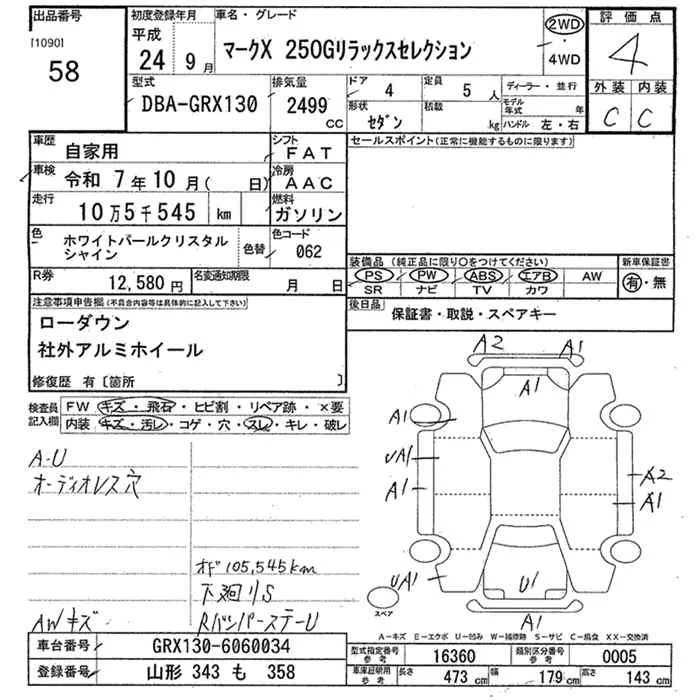 出品番号
[1090]
58
初度登録年月
平成
24 9 月
車名・グレード
マークX 250Gリラックスセレクション
2WD
・
4WD
評価点
4
外装 内装
C C
型式
DBA-GRX130
排気量
2499 CC
ドア 4
定員 5 人
形状 セダン
積載 kg
ディーラー・並行
モデル年式 年
ハンドル 左・右
車歴 自家用
シフト FAT
車検 令和 7年 10月( 日)
冷房 AAC
走行 10万5千545 km
燃料 ガソリン
色 ホワイトパールクリスタル
シャイン
色替
色コード 062
R券 12,580円
名変通知期限 月 日
セールスポイント(正常に機能するものに限ります)
装備品 (純正品に限り○をつけてください)
新車保証書
PS PW ABS エアB AW
SR ナビ TV カワ
有・無
後日品 保証書・取説・スペアキー
注意事項申告欄 (不具合内容等は具体的に記入して下さい)
ローダウン
社外アルミホイール
修復歴 有〔箇所 〕
検査員
記入欄
FW キズ・飛石・ヒビ割・リペア跡・×要
内装 キズ・汚レ・コゲ・穴・スレ・キレ・破レ
A-U
オーディオレス穴
オド105,545km
下廻りS
AWキズ
RバンパーステーU
A2
A1
A1
A1
UA1
A1
A2
A1
UA1
U1
A1
スペア
A-キズ E-エクボ U-凹み W-補修跡 S-サビ C-腐食 XX-交換済
車台番号 GRX130-6060034
登録番号 山形 343 も 358
型式指定番号 参考 16360
類別区分番号 参考 0005
車庫証明用 参考
長さ 473 cm
幅 179 cm
高さ 143 cm